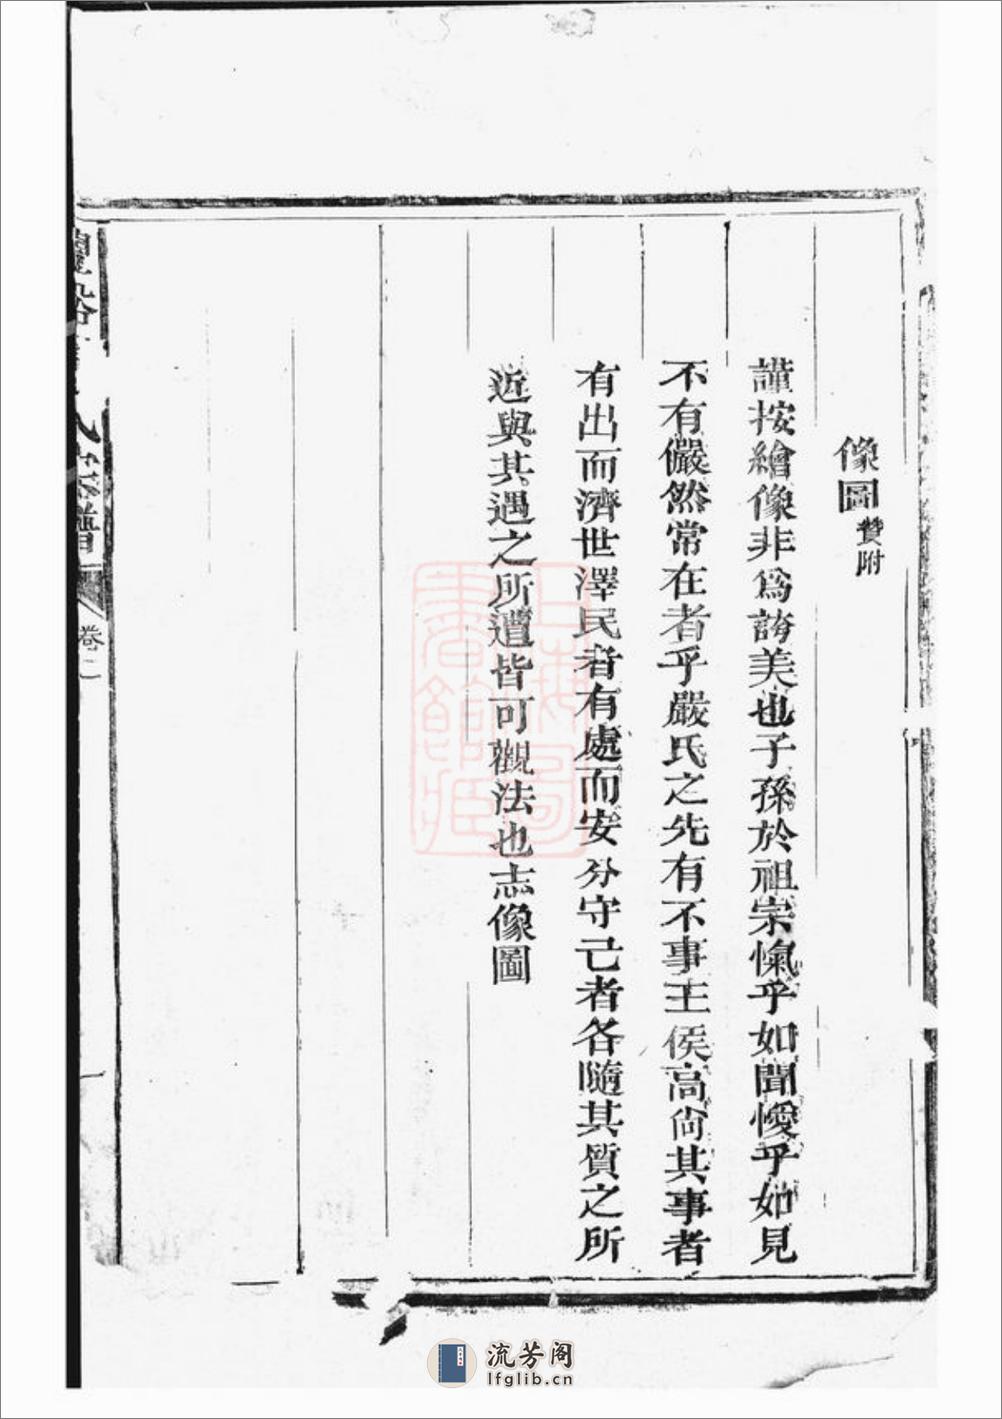 像圖贊附
謹按繪像非爲誇美也子孫於祖宗愾乎如聞僾乎如見
不有儼然常在者乎嚴氏之先有不事王侯高尙其事者
有出而濟世澤民者有處而安分守己者各隨其質之所
近與其遇之所遭皆可觀法也志像圖
氏宗譜
卷二
上海圖書館藏
流芳阁
lfglib.cn